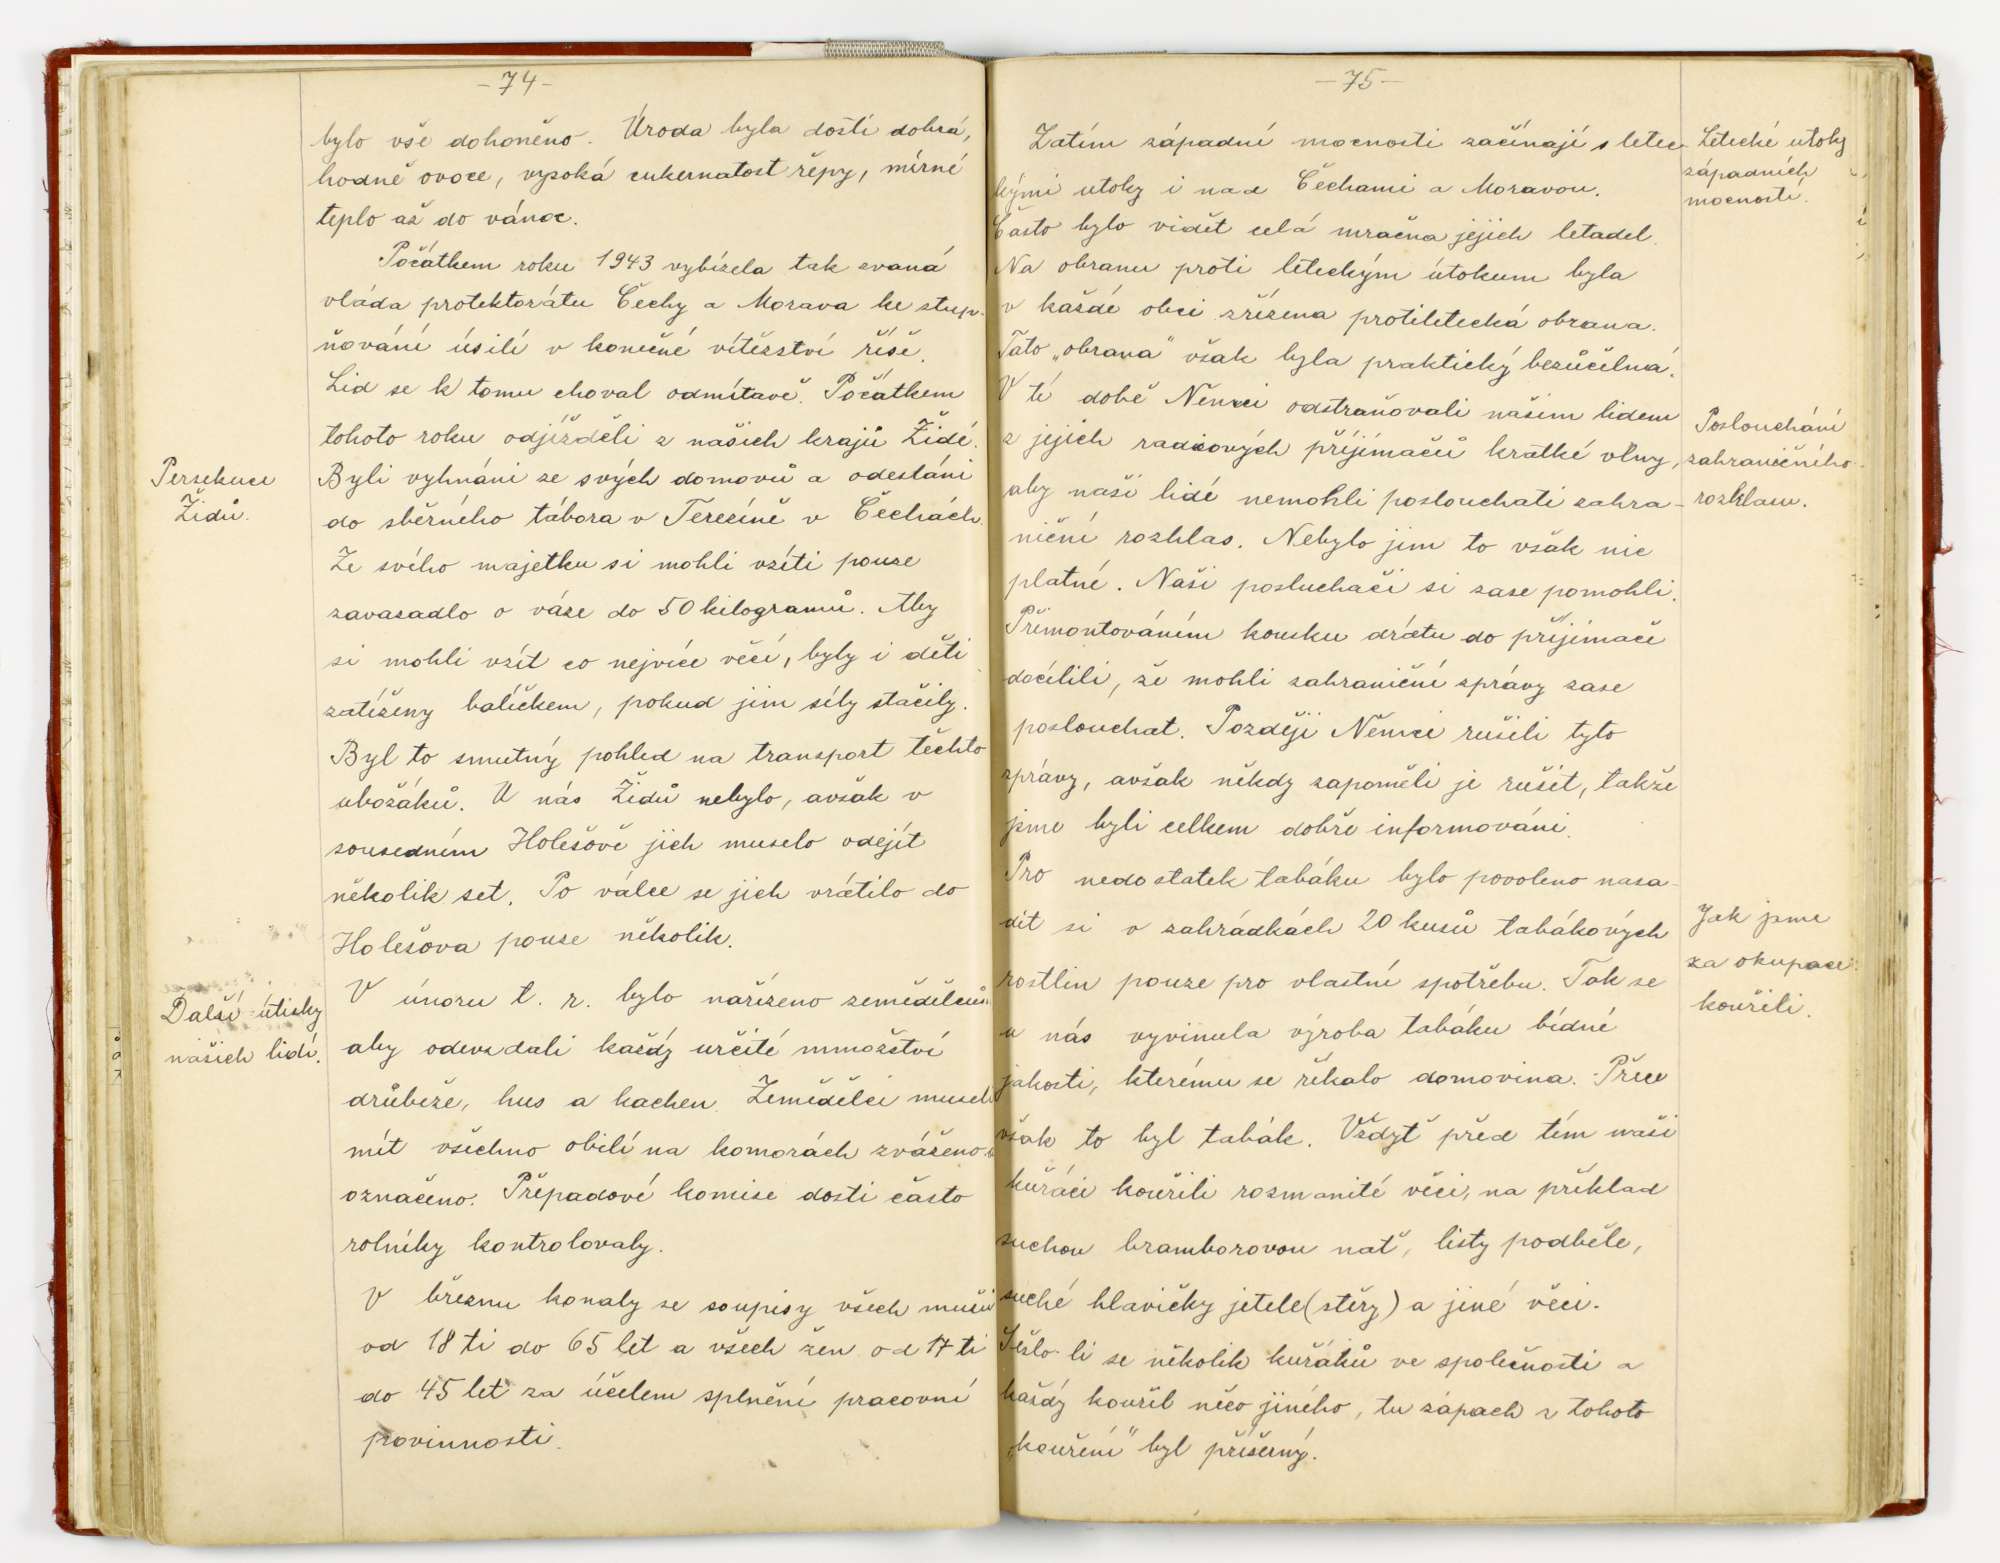 -74-
bylo vše dohoněno. Úroda byla dosti dobrá,
hodně ovoce, vysoká cukernatost řepy, mírné
teplo až do vánoc.
Počátkem roku 1943 vybízela tak zvaná
vláda protektorátu Čechy a Morava ke stup-
ňování úsilí v konečné vítězství říše.
Lid se k tomu choval odmítavě. Počátkem
tohoto roku odjížděli z našich krajů Židé.
Persekuce
Židů.
Byli vyhnáni ze svých domovů a odesláni
do sběrného tábora v Terezíně v Čechách.
Ze svého majetku si mohli vzíti pouze
zavazadlo o váze do 50 kilogramů. Aby
si mohli vzít co nejvíce věcí, byly i děti
zatíženy balíčkem, pokud jim síly stačily.
Byl to smutný pohled na transport těchto
ubožáků. U nás Židů nebylo, avšak v
sousedním Holešově jich muselo odejít
několik set. Po válce se jich vrátilo do
Holešova pouze několik.
Další útisky
našich lidí.
V únoru t. r. bylo nařízeno zemědělcům
aby odevzdali každý určité mmožství
drůbeže, hus a kachen. Zemědělci museli
mít všechno obilí na komorách zváženo a
označeno. Přepadové komise dosti často
rolníky kontrolovaly.
V březnu konaly se soupisy všech mužů
od 18 ti do 65 let a všech žen od 17 ti
do 45 let za účelem splnění pracovní
povinnosti.
-75-
Zatím západní mocnosti začínají s letec-
kými utoky i nad Čechami a Moravou.
Často bylo vidět celá mračna jejich letadel.
Na obranu proti leteckým útokum byla
v každé obci zřízena protiletecká obrana.
Tato „obrana" však byla praktický bezúčelná.
V té době Němci odstraňovali našim lidem
z jejich radiových příjímačů krátké vlny,
aby naši lidé nemohli poslouchati zahra-
niční rozhlas. Nebylo jim to však nic
platné. Naši posluchači si zase pomohli.
Přimontováním kousku drátu do příjímače
docílili, že mohli zahraniční zprávy zase
poslouchat. Později Němci rušili tyto
zprávy, avšak někdy zapoměli je rušit, takže
jsme byli celkem dobře informováni.
Pro nedostatek tabáku bylo povoleno nasa-
dit si v zahrádkách 20 kusů tabákových
rostlin pouze pro vlastní spotřebu. Tak se
u nás vyvinula výroba tabáku bídné
jakosti, kterému se říkalo domovina. Přece
však to byl tabák. Vždyť před tím naši
kuřáci kouřili rozmanité věci, na příklad
suchou bramborovou nať, listy podběle,
suché hlavičky jetele (stěry) a jiné věci.
Sešlo-li se několik kuřáků ve společnosti a
každý kouřil něco jiného, tu zápach z tohoto
„kouření" byl příšerný.
Letecké utoky
západních
mocností.
Poslouchání
zahraničního
rozhlasu.
Jak jsme
za okupace
kouřili.